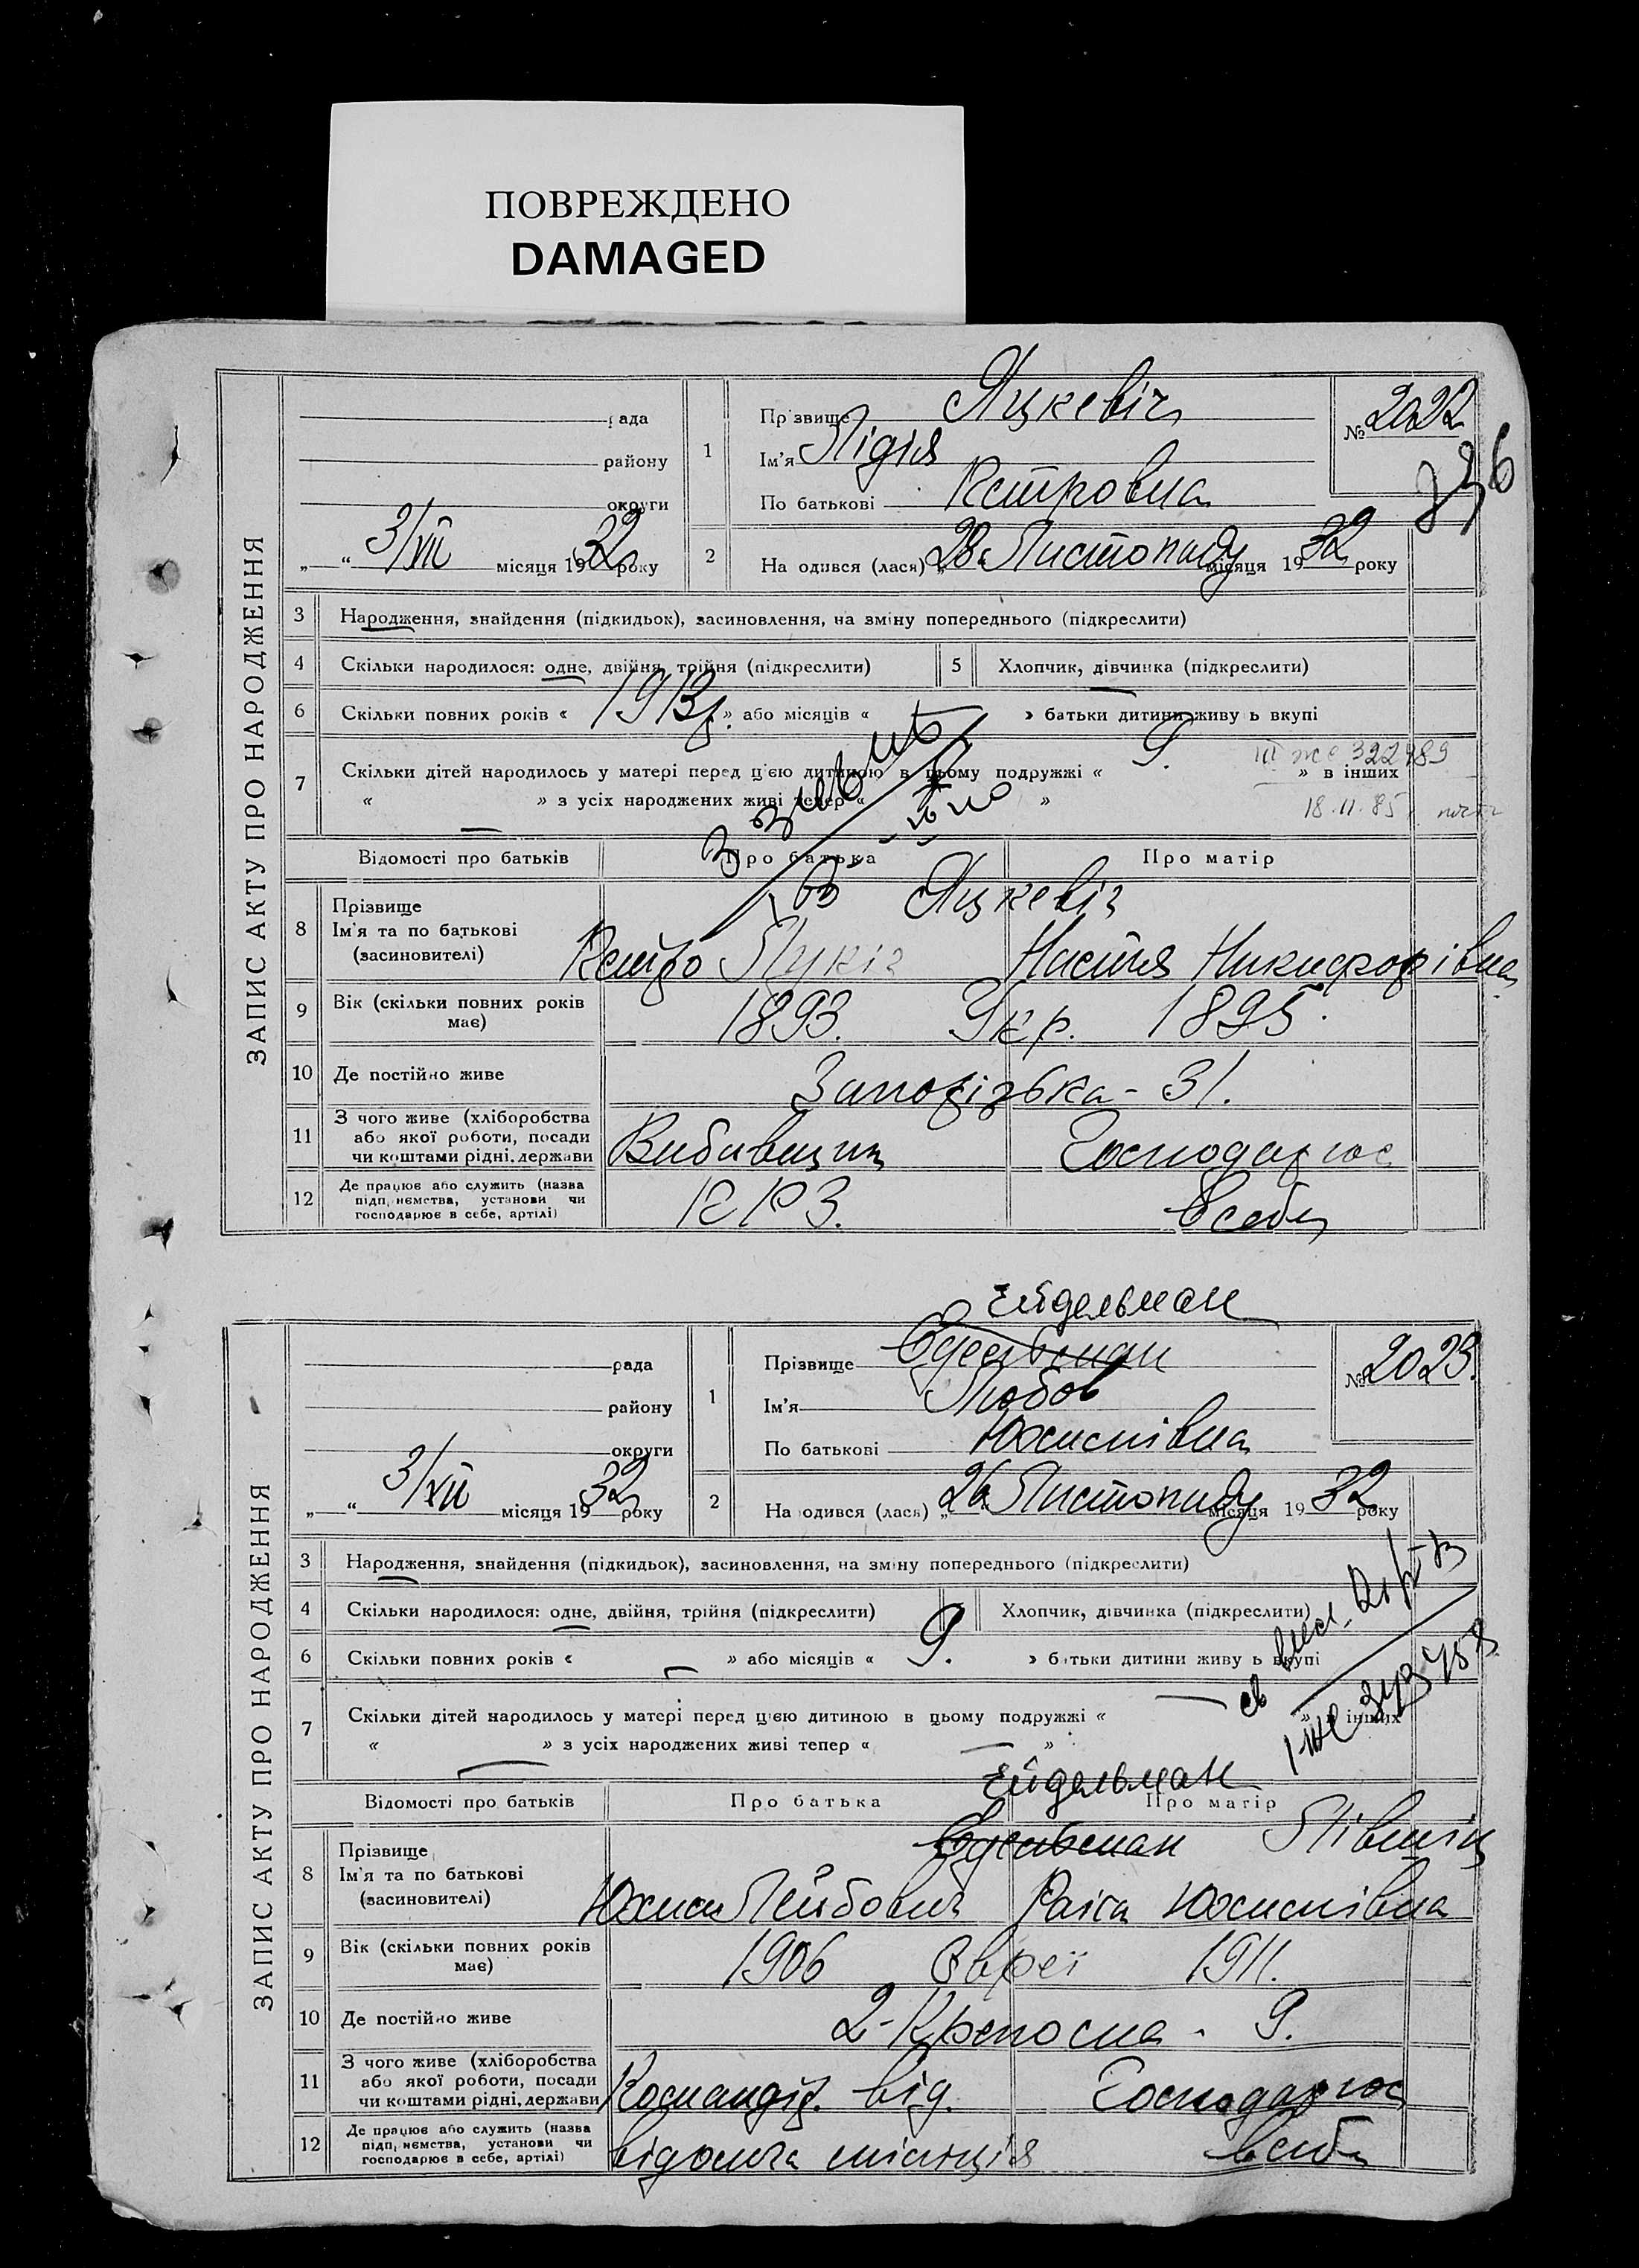 ПОВРЕЖДЕНО
DAMAGED
ЗАПИС АКТУ ПРО НАРОДЖЕННЯ
рада
району
округи
„ “ 3/XII місяця 1932 року
1
Прізвище Яцкевіч
Ім'я Лідія
По батькові Петровна
№ 2022
2
Народився (лася) „28 Листопаду місяця 1932 року
3 Народження, знайдення (підкидьок), засиновлення, на зміну попереднього (підкреслити)
4 Скільки народилося: одне, двійня, трійня (підкреслити) 5 Хлопчик, дівчинка (підкреслити)
6 Скільки повних років « 1913 р. » або місяців « — » батьки дитини живуть вкупі
7 Скільки дітей народилось у матері перед цією дитиною в цьому подружжі « 9. » в інших
« — » з усіх народжених живі тепер « »
III 322489
18.11.85
Відомості про батьків Про батька Про матір
8 Прізвище
Ім'я та по батькові
(засиновителі)
Яцкевіч
Петро Лукіч Настя Никифорівна
9 Вік (скільки повних років має) 1893. Укр. 1895.
10 Де постійно живе Запорізька - 31.
11 З чого живе (хліборобства або якої роботи, посади чи коштами рідні, держави Вибивщик Господарює
12 Де працює або служить (назва підприємства, установи чи господарює в себе, артілі) ККЗ. в себе
Ейдельман
ЗАПИС АКТУ ПРО НАРОДЖЕННЯ
рада
району
округи
„ “ 3/XII місяця 1932 року
1
Прізвище Едельман
Ім'я Любов
По батькові Юхимівна
№ 2023.
2
Народився (лася) „26 Листопаду місяця 1932 року
3 Народження, знайдення (підкидьок), засиновлення, на зміну попереднього (підкреслити)
4 Скільки народилося: одне, двійня, трійня (підкреслити) Хлопчик, дівчинка (підкреслити)
6 Скільки повних років « — » або місяців « 9. » батьки дитини живуть вкупі
7 Скільки дітей народилось у матері перед цією дитиною в цьому подружжі « — » в інших
« — » з усіх народжених живі тепер « — »
Ейдельман
Відомості про батьків Про батька Про матір
8 Прізвище
Ім'я та по батькові
(засиновителі)
Едельман
Юхим Лейбович Раіса Юхимівна
9 Вік (скільки повних років має) 1906 Євреї 1911.
10 Де постійно живе 2-Крепосна - 9.
11 З чого живе (хліборобства або якої роботи, посади чи коштами рідні, держави Командір. від. Господарює
12 Де працює або служить (назва підприємства, установи чи господарює в себе, артілі) в себе